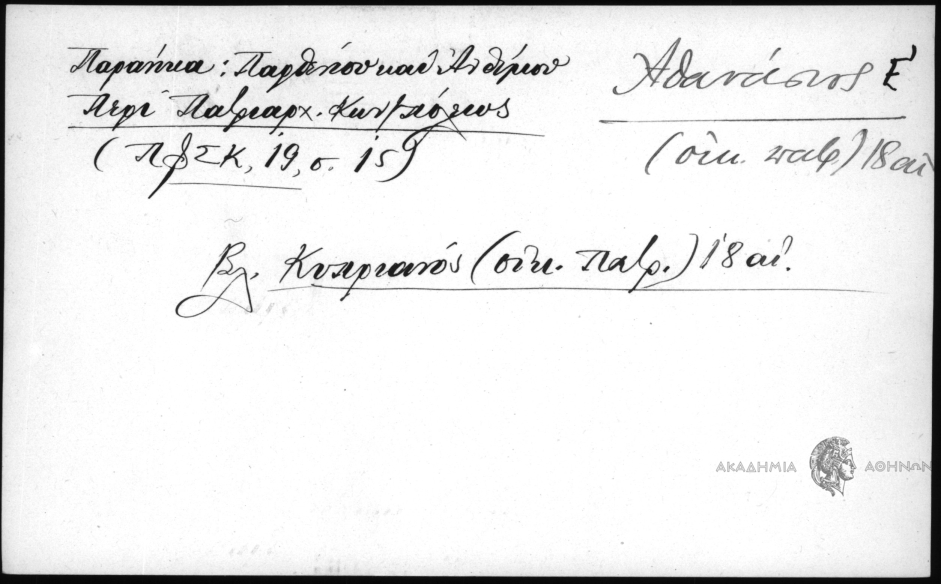 Παρανίκα: Παρθενίου καὶ Ἀνθίμου
Περὶ Πατριαρχ. Κων/πόλεως
(ΠφΣΚ, 19, σ. 15)
Ἀθανάσιος Ε΄
(οἰκ. πατρ) 18 αἰ
Βλ. Κυπριανός (οἰκ. Πατρ.) 18 αἰ.
ΑΚΑΔΗΜΙΑ ΑΘΗΝΩΝ